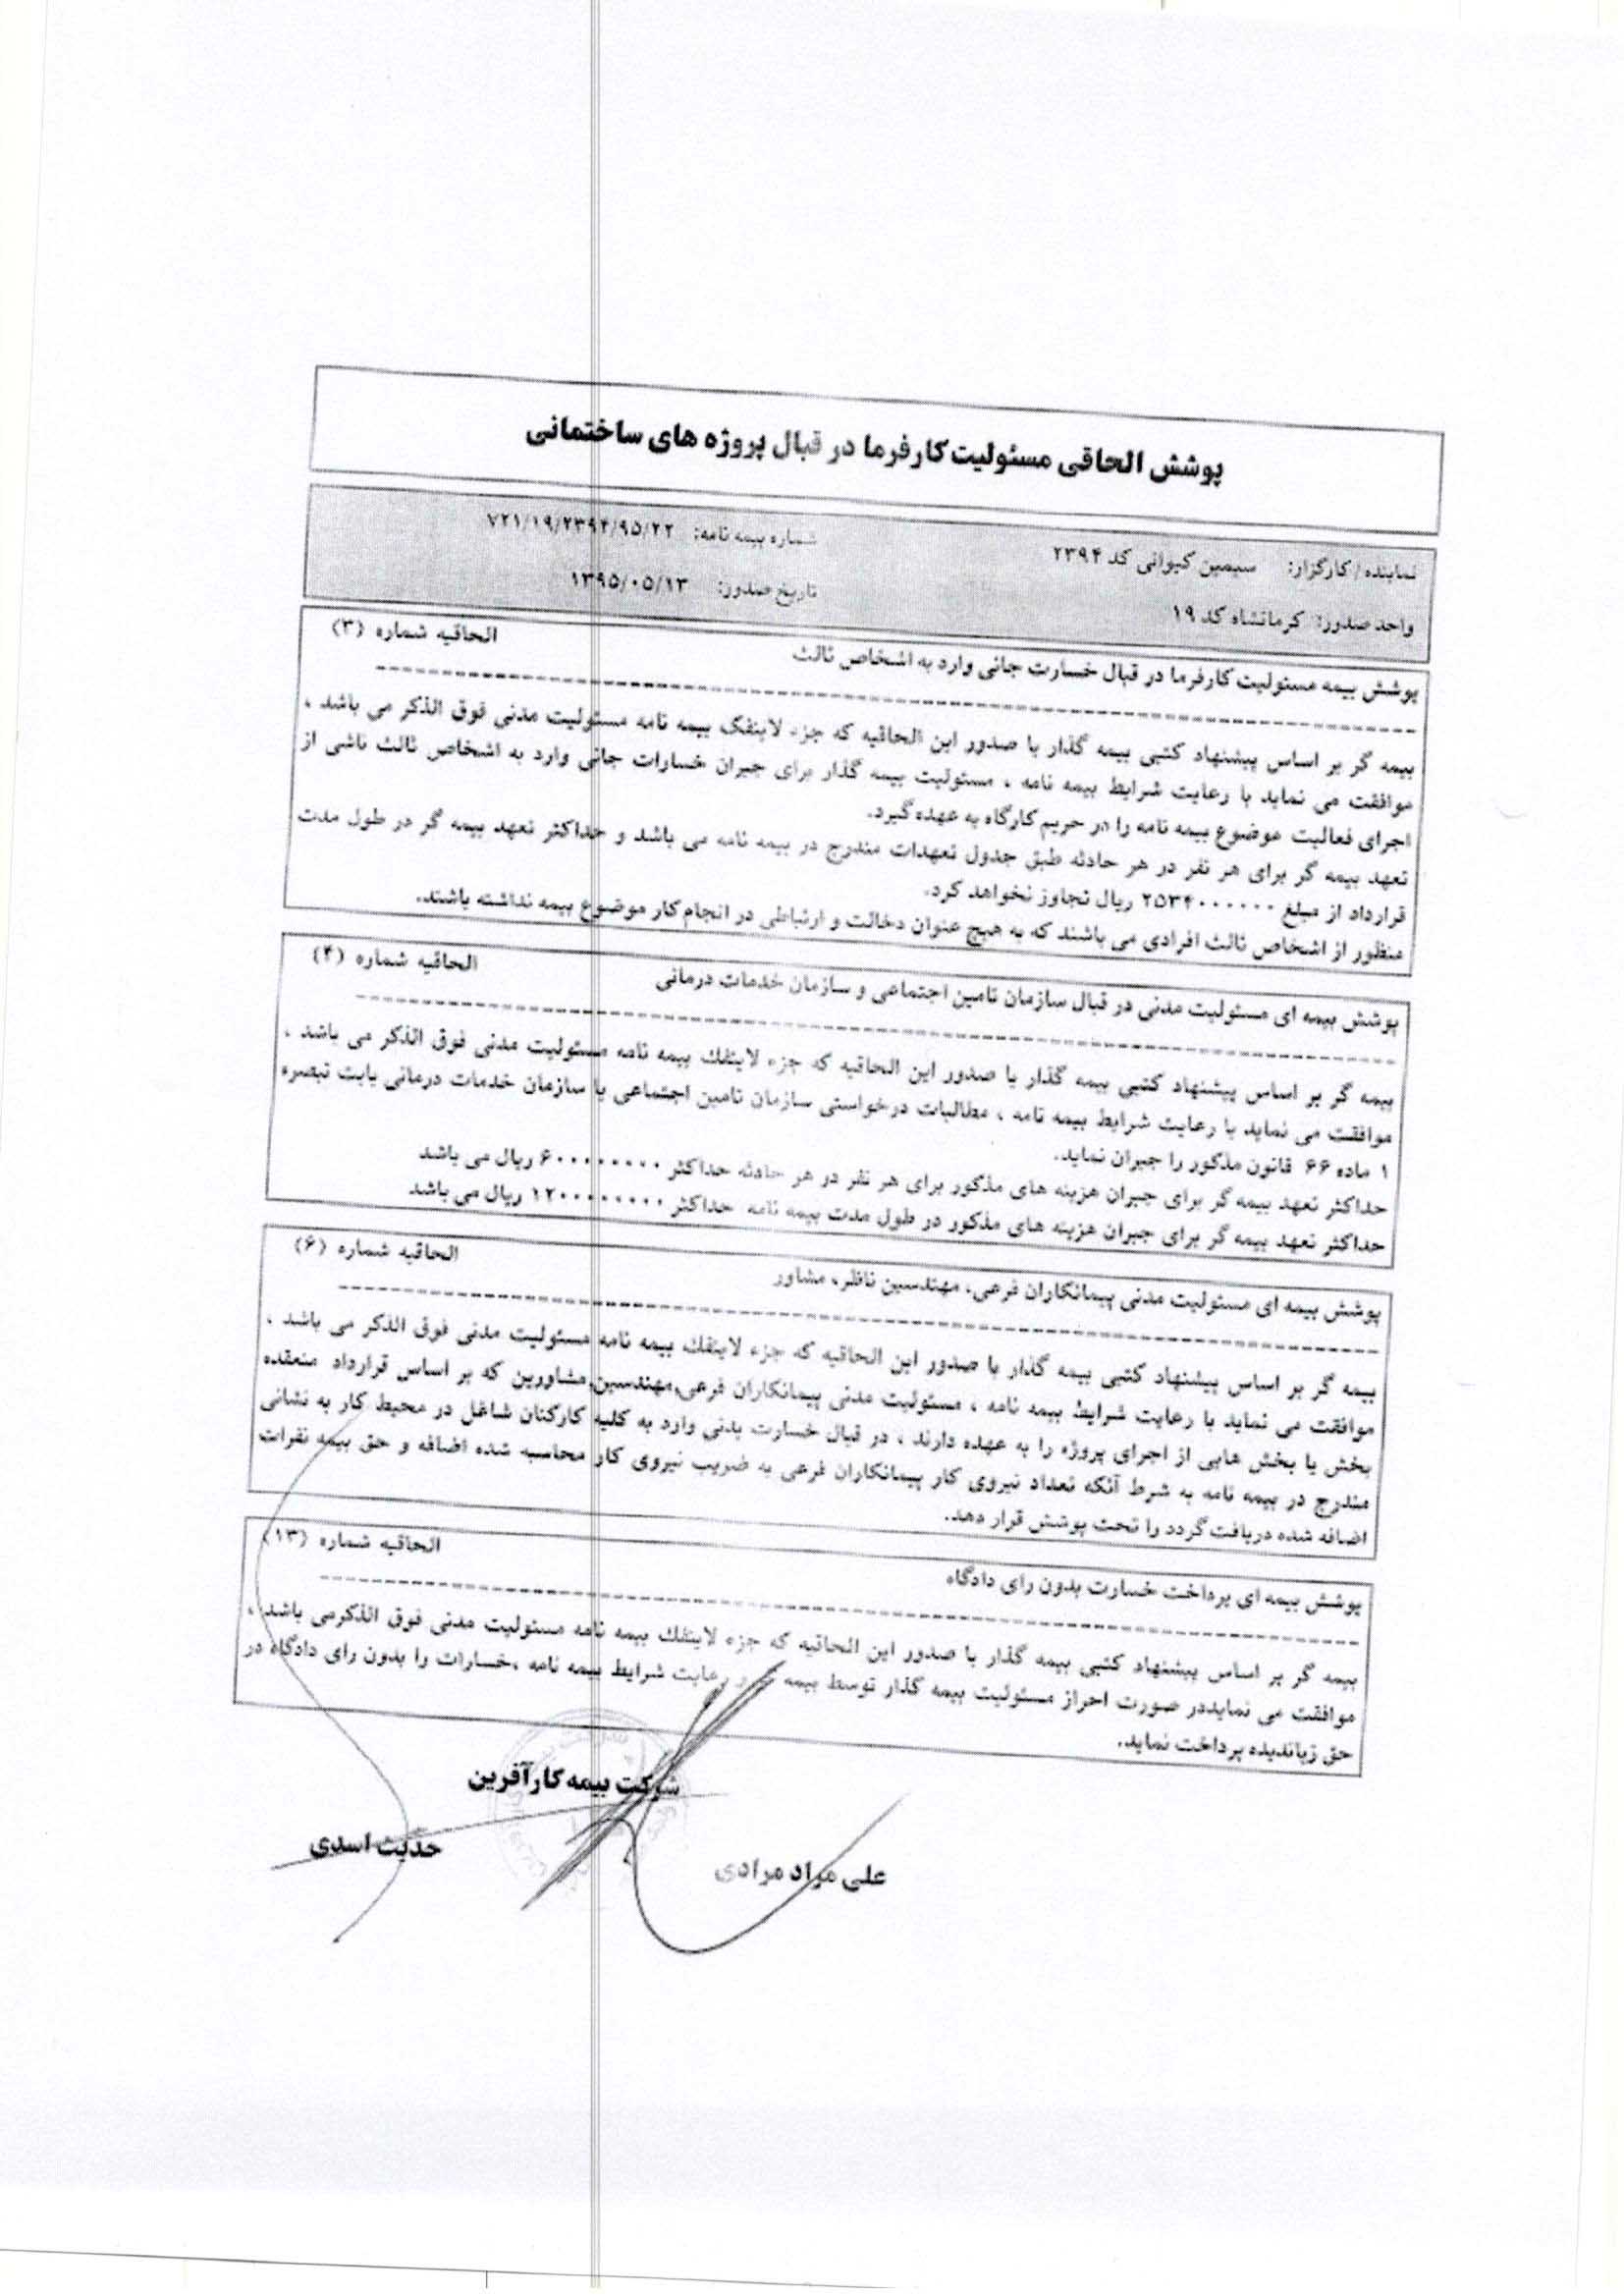 پوشش الحاقی مسئولیت کارفرما در قبال پروژه های ساختمانی
نماینده / کارگزار: سیمین کیوانی کد ۲۳۹۴ شماره بیمه نامه: ۷۲۱/۱۹/۲۳۹۴/۹۵/۲۲
واحد صدور: کرمانشاه کد ۱۹ تاریخ صدور: ۱۳۹۵/۰۵/۱۳
پوشش بیمه مسئولیت کارفرما در قبال خسارت جانی وارد به اشخاص ثالث الحاقیه شماره (۳)
بیمه گر بر اساس پیشنهاد کتبی بیمه گذار با صدور این الحاقیه که جزء لاینفک بیمه نامه مسئولیت مدنی فوق الذکر می باشد ،
موافقت می نماید با رعایت شرایط بیمه نامه ، مسئولیت بیمه گذار برای جبران خسارات جانی وارد به اشخاص ثالث ناشی از
اجرای فعالیت موضوع بیمه نامه را در حریم کارگاه به عهده گیرد.
تعهد بیمه گر برای هر نفر در هر حادثه طبق جدول تعهدات مندرج در بیمه نامه می باشد و حداکثر تعهد بیمه گر در طول مدت
قرارداد از مبلغ ۲۵۳۴۰۰۰۰۰۰ ریال تجاوز نخواهد کرد.
منظور از اشخاص ثالث افرادی می باشند که به هیچ عنوان دخالت و ارتباطی در انجام کار موضوع بیمه نداشته باشند.
پوشش بیمه ای مسئولیت مدنی در قبال سازمان تامین اجتماعی و سازمان خدمات درمانی الحاقیه شماره (۴)
بیمه گر بر اساس پیشنهاد کتبی بیمه گذار با صدور این الحاقیه که جزء لاینفک بیمه نامه مسئولیت مدنی فوق الذکر می باشد ،
موافقت می نماید با رعایت شرایط بیمه نامه ، مطالبات درخواستی سازمان تامین اجتماعی یا سازمان خدمات درمانی بابت تبصره
۱ ماده ۶۶ قانون مذکور را جبران نماید.
حداکثر تعهد بیمه گر برای جبران هزینه های مذکور برای هر نفر در هر حادثه حداکثر ۶۰۰۰۰۰۰۰۰ ریال می باشد
حداکثر تعهد بیمه گر برای جبران هزینه های مذکور در طول مدت بیمه نامه حداکثر ۱۲۰۰۰۰۰۰۰۰ ریال می باشد
پوشش بیمه ای مسئولیت مدنی پیمانکاران فرعی، مهندسین ناظر، مشاور الحاقیه شماره (۶)
بیمه گر بر اساس پیشنهاد کتبی بیمه گذار با صدور این الحاقیه که جزء لاینفک بیمه نامه مسئولیت مدنی فوق الذکر می باشد ،
موافقت می نماید با رعایت شرایط بیمه نامه ، مسئولیت مدنی پیمانکاران فرعی،مهندسین،مشاورین که بر اساس قرارداد منعقده
بخش یا بخش هایی از اجرای پروژه را به عهده دارند ، در قبال خسارت بدنی وارد به کلیه کارکنان شاغل در محیط کار به نشانی
مندرج در بیمه نامه به شرط آنکه تعداد نیروی کار پیمانکاران فرعی به ضریب نیروی کار محاسبه شده اضافه و حق بیمه نفرات
اضافه شده دریافت گردد را تحت پوشش قرار دهد.
پوشش بیمه ای پرداخت خسارت بدون رای دادگاه الحاقیه شماره (۱۳)
بیمه گر بر اساس پیشنهاد کتبی بیمه گذار با صدور این الحاقیه که جزء لاینفک بیمه نامه مسئولیت مدنی فوق الذکرمی باشد ،
موافقت می نمایددر صورت احراز مسئولیت بیمه گذار توسط بیمه رعایت شرایط بیمه نامه ،خسارات را بدون رای دادگاه در
حق زیاندیده پرداخت نماید.
شرکت بیمه کارآفرین
علی مراد مرادی حدیث اسدی